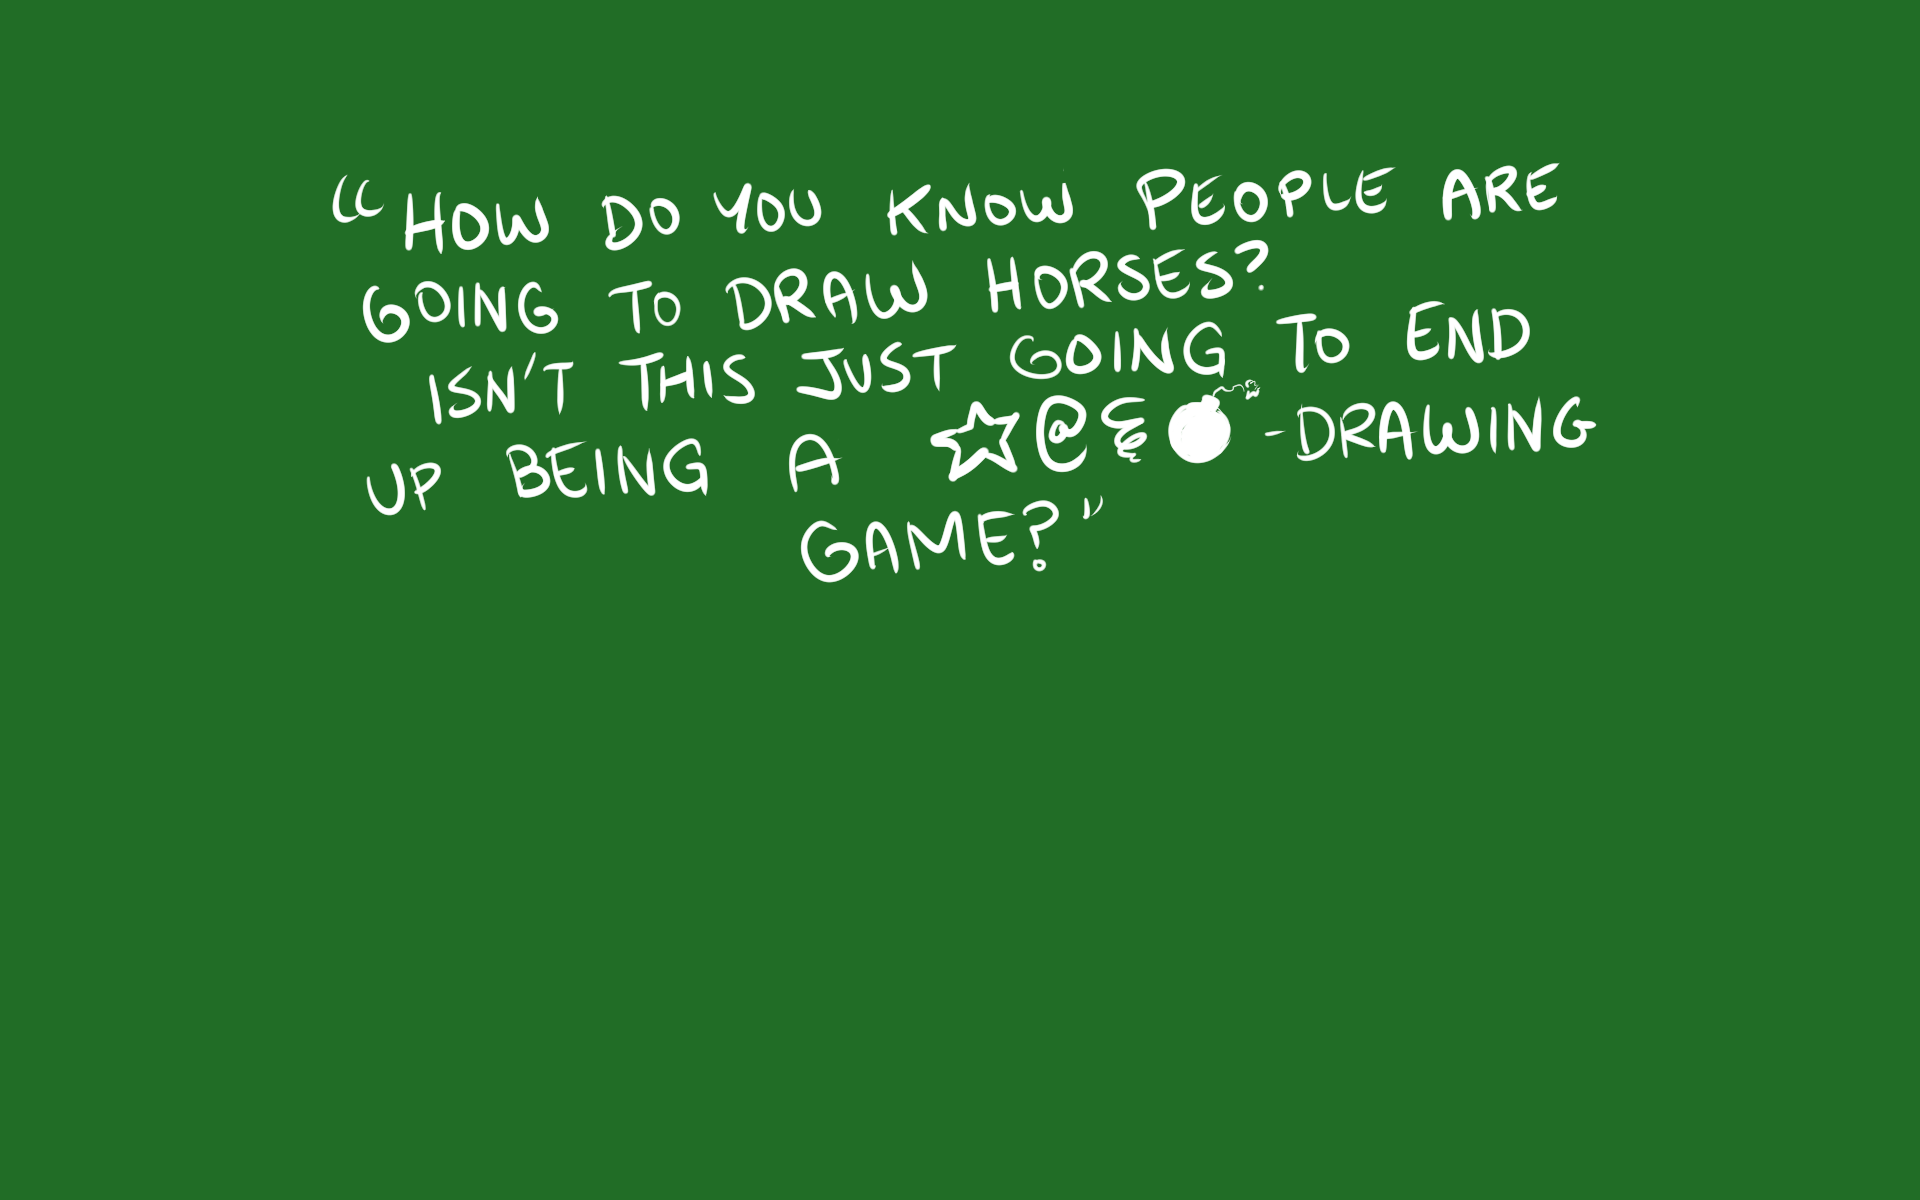 "HOW DO YOU KNOW PEOPLE ARE
GOING TO DRAW HORSES?
ISN'T THIS JUST GOING TO END
UP BEING A ☆@ξ💣-DRAWING
GAME?"